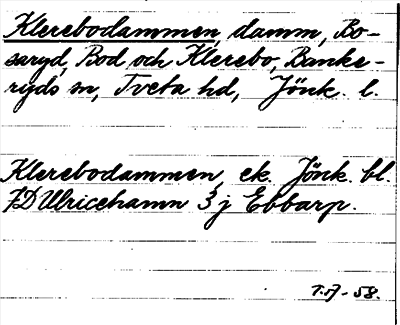 Klerebodammen, damm, Bo-
saryd, Bod och Klerebo, Banke-
ryds sn, Tveta hd, Jönk. l.
Klerebodammen, ek. Jönk. bl.
7D Ulricehamn 3 j Ebbarp.
-58.